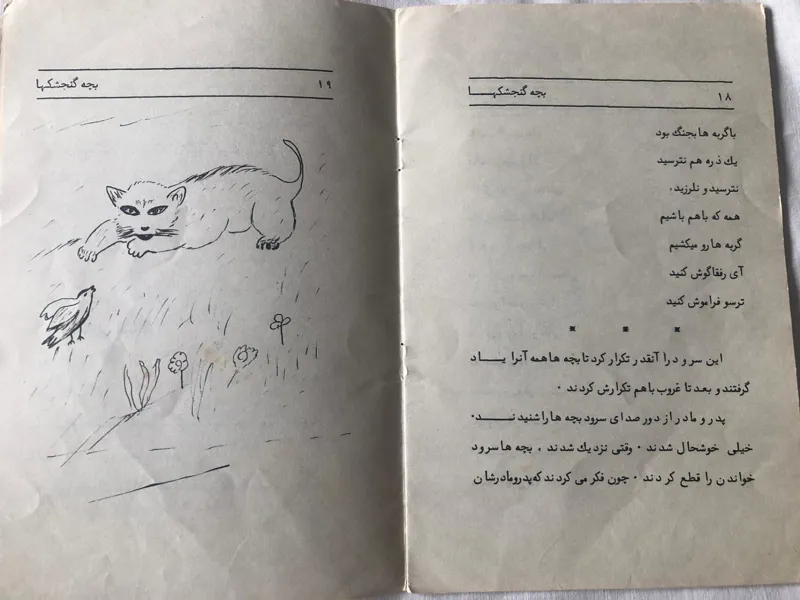 ۱۸ بچه گنجشکهـــا
باگربه ها بجنگ بود
یك ذره هم نترسید
نترسید و نلرزید.
همه که باهم باشیم
گربه ها رو میکشیم
آی رفقا گوش کنید
ترسو فراموش کنید
* * *
این سرود را آنقدر تکرار کرد تا بچه ها همه آنرا یـــاد
گرفتند و بعد تا غروب باهم تکرارش کردند .
پدر و مادر از دور صدای سرود بچه ها را شنیدنـــد.
خیلی خوشحال شدند . وقتی نزدیك شدند ، بچه ها سرود
خواندن را قطع کردند . چون فکر می کردند که پدرومادرشان
۱۹ بچه گنجشکها